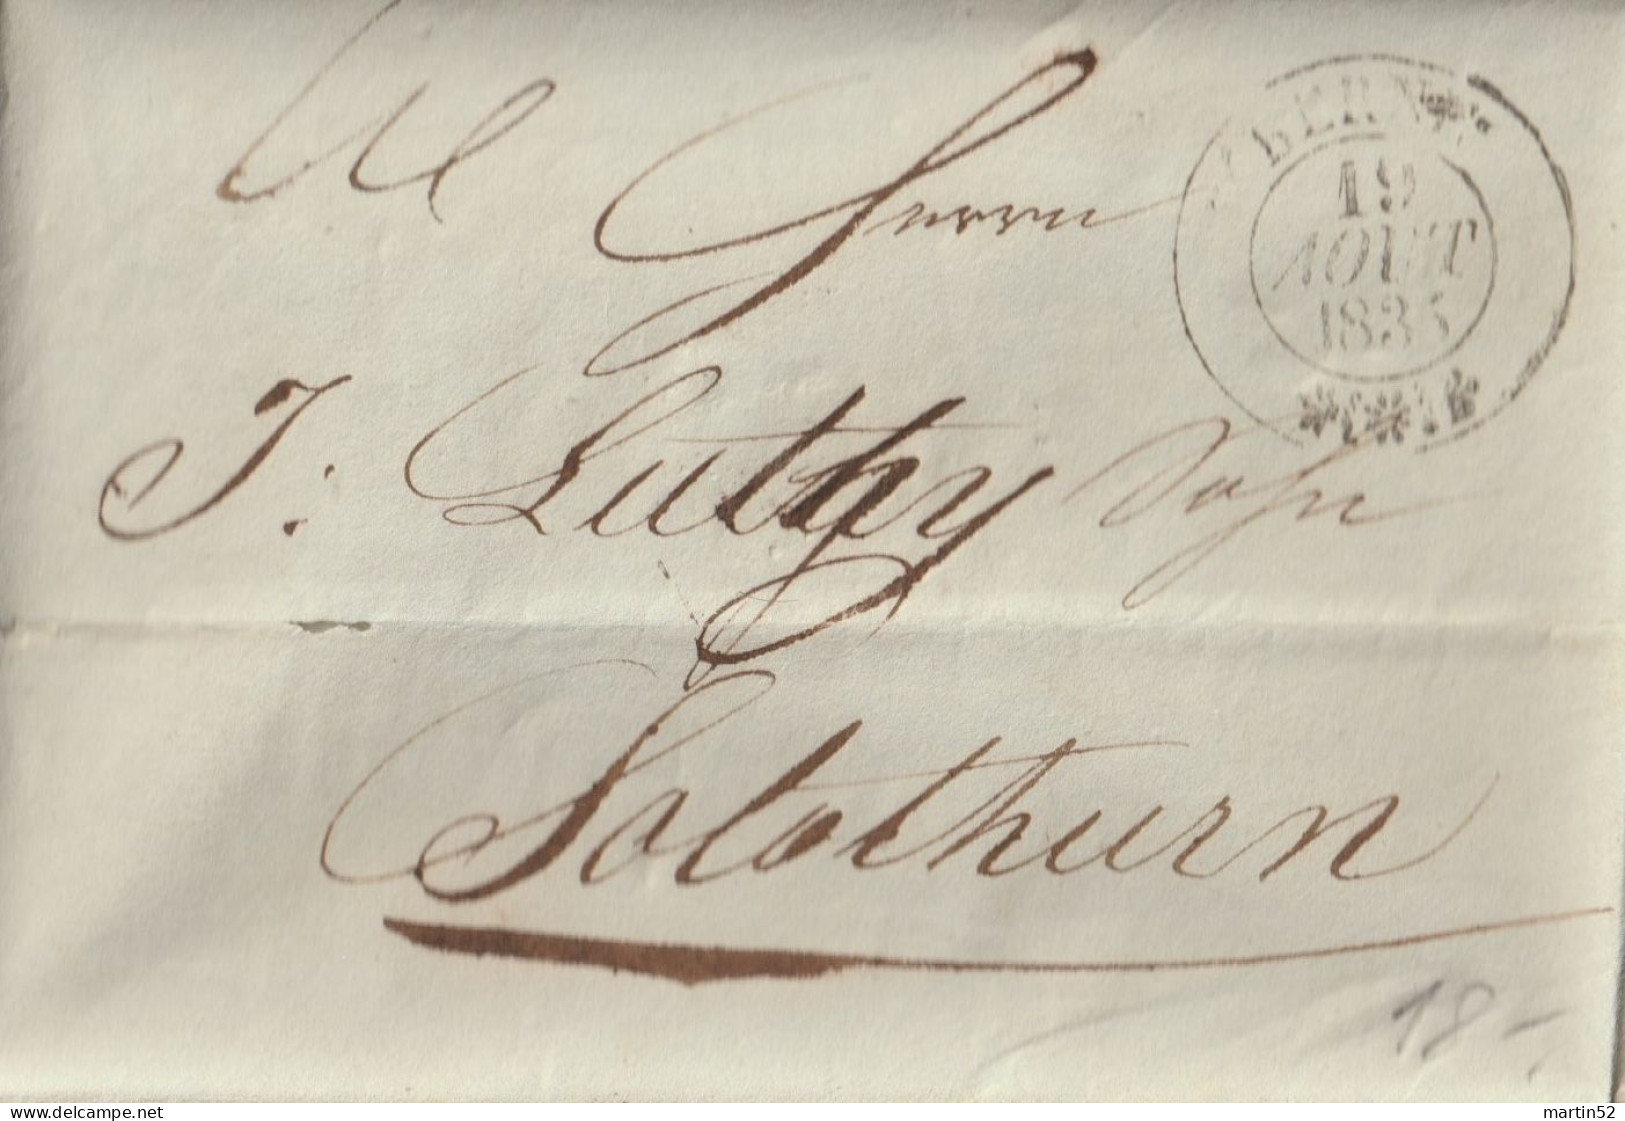 Herrn
BERN
19
AOUT
1835
J. Luthy Sohn
Solothurn
18-
www.delcampe.net
martin52